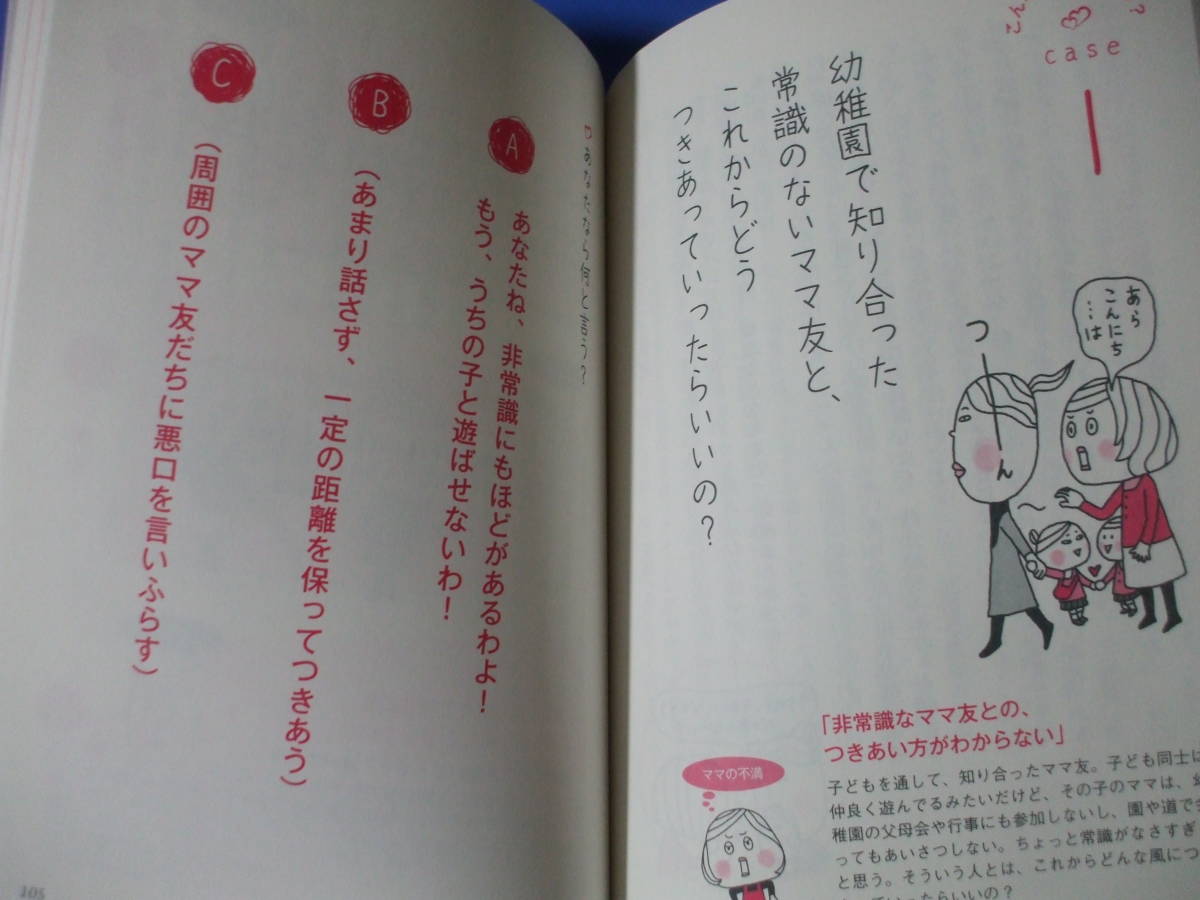 こん
?
case
幼稚園で知り合った
常識のないママ友と、
これからどう
つきあっていったらいいの?
あら
こんにち
…は
つーん
「非常識なママ友との、
つきあい方がわからない」
ママの不満
子どもを通して、知り合ったママ友。子ども同士は
仲良く遊んでるみたいだけど、その子のママは、幼
稚園の父母会や行事にも参加しないし、園や道で会
ってもあいさつしない。ちょっと常識がなさすぎ
と思う。そういう人とは、これからどんな風につ
あなたなら何と言う?
A
あなたね、非常識にもほどがあるわよ!
もう、うちの子と遊ばせないわ!
B
(あまり話さず、一定の距離を保ってつきあう)
C
(周囲のママ友だちに悪口を言いふらす)
105